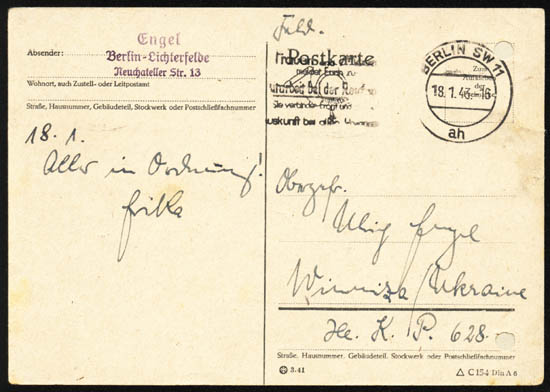 Feld.
Engel
Absender: Berlin-Lichterfelde
Neuchateller Str. 13
Wohnort, auch Zustell- oder Leitpostamt
Straße, Hausnummer, Gebäudeteil, Stockwerk oder Postschließfachnummer
18. 1.
Alles in Ordnung!
Erika
Postkarte
BERLIN SW 11
18. 1. 43.-16
ah
arbeit bei der
Sie verbindet
uskunft bei
Obergefr.
Engel
Winniza/Ukraine
He. K. P. 628.
Straße, Hausnummer, Gebäudeteil, Stockwerk oder Postschließfachnummer
3.41
C 154 Din A 6